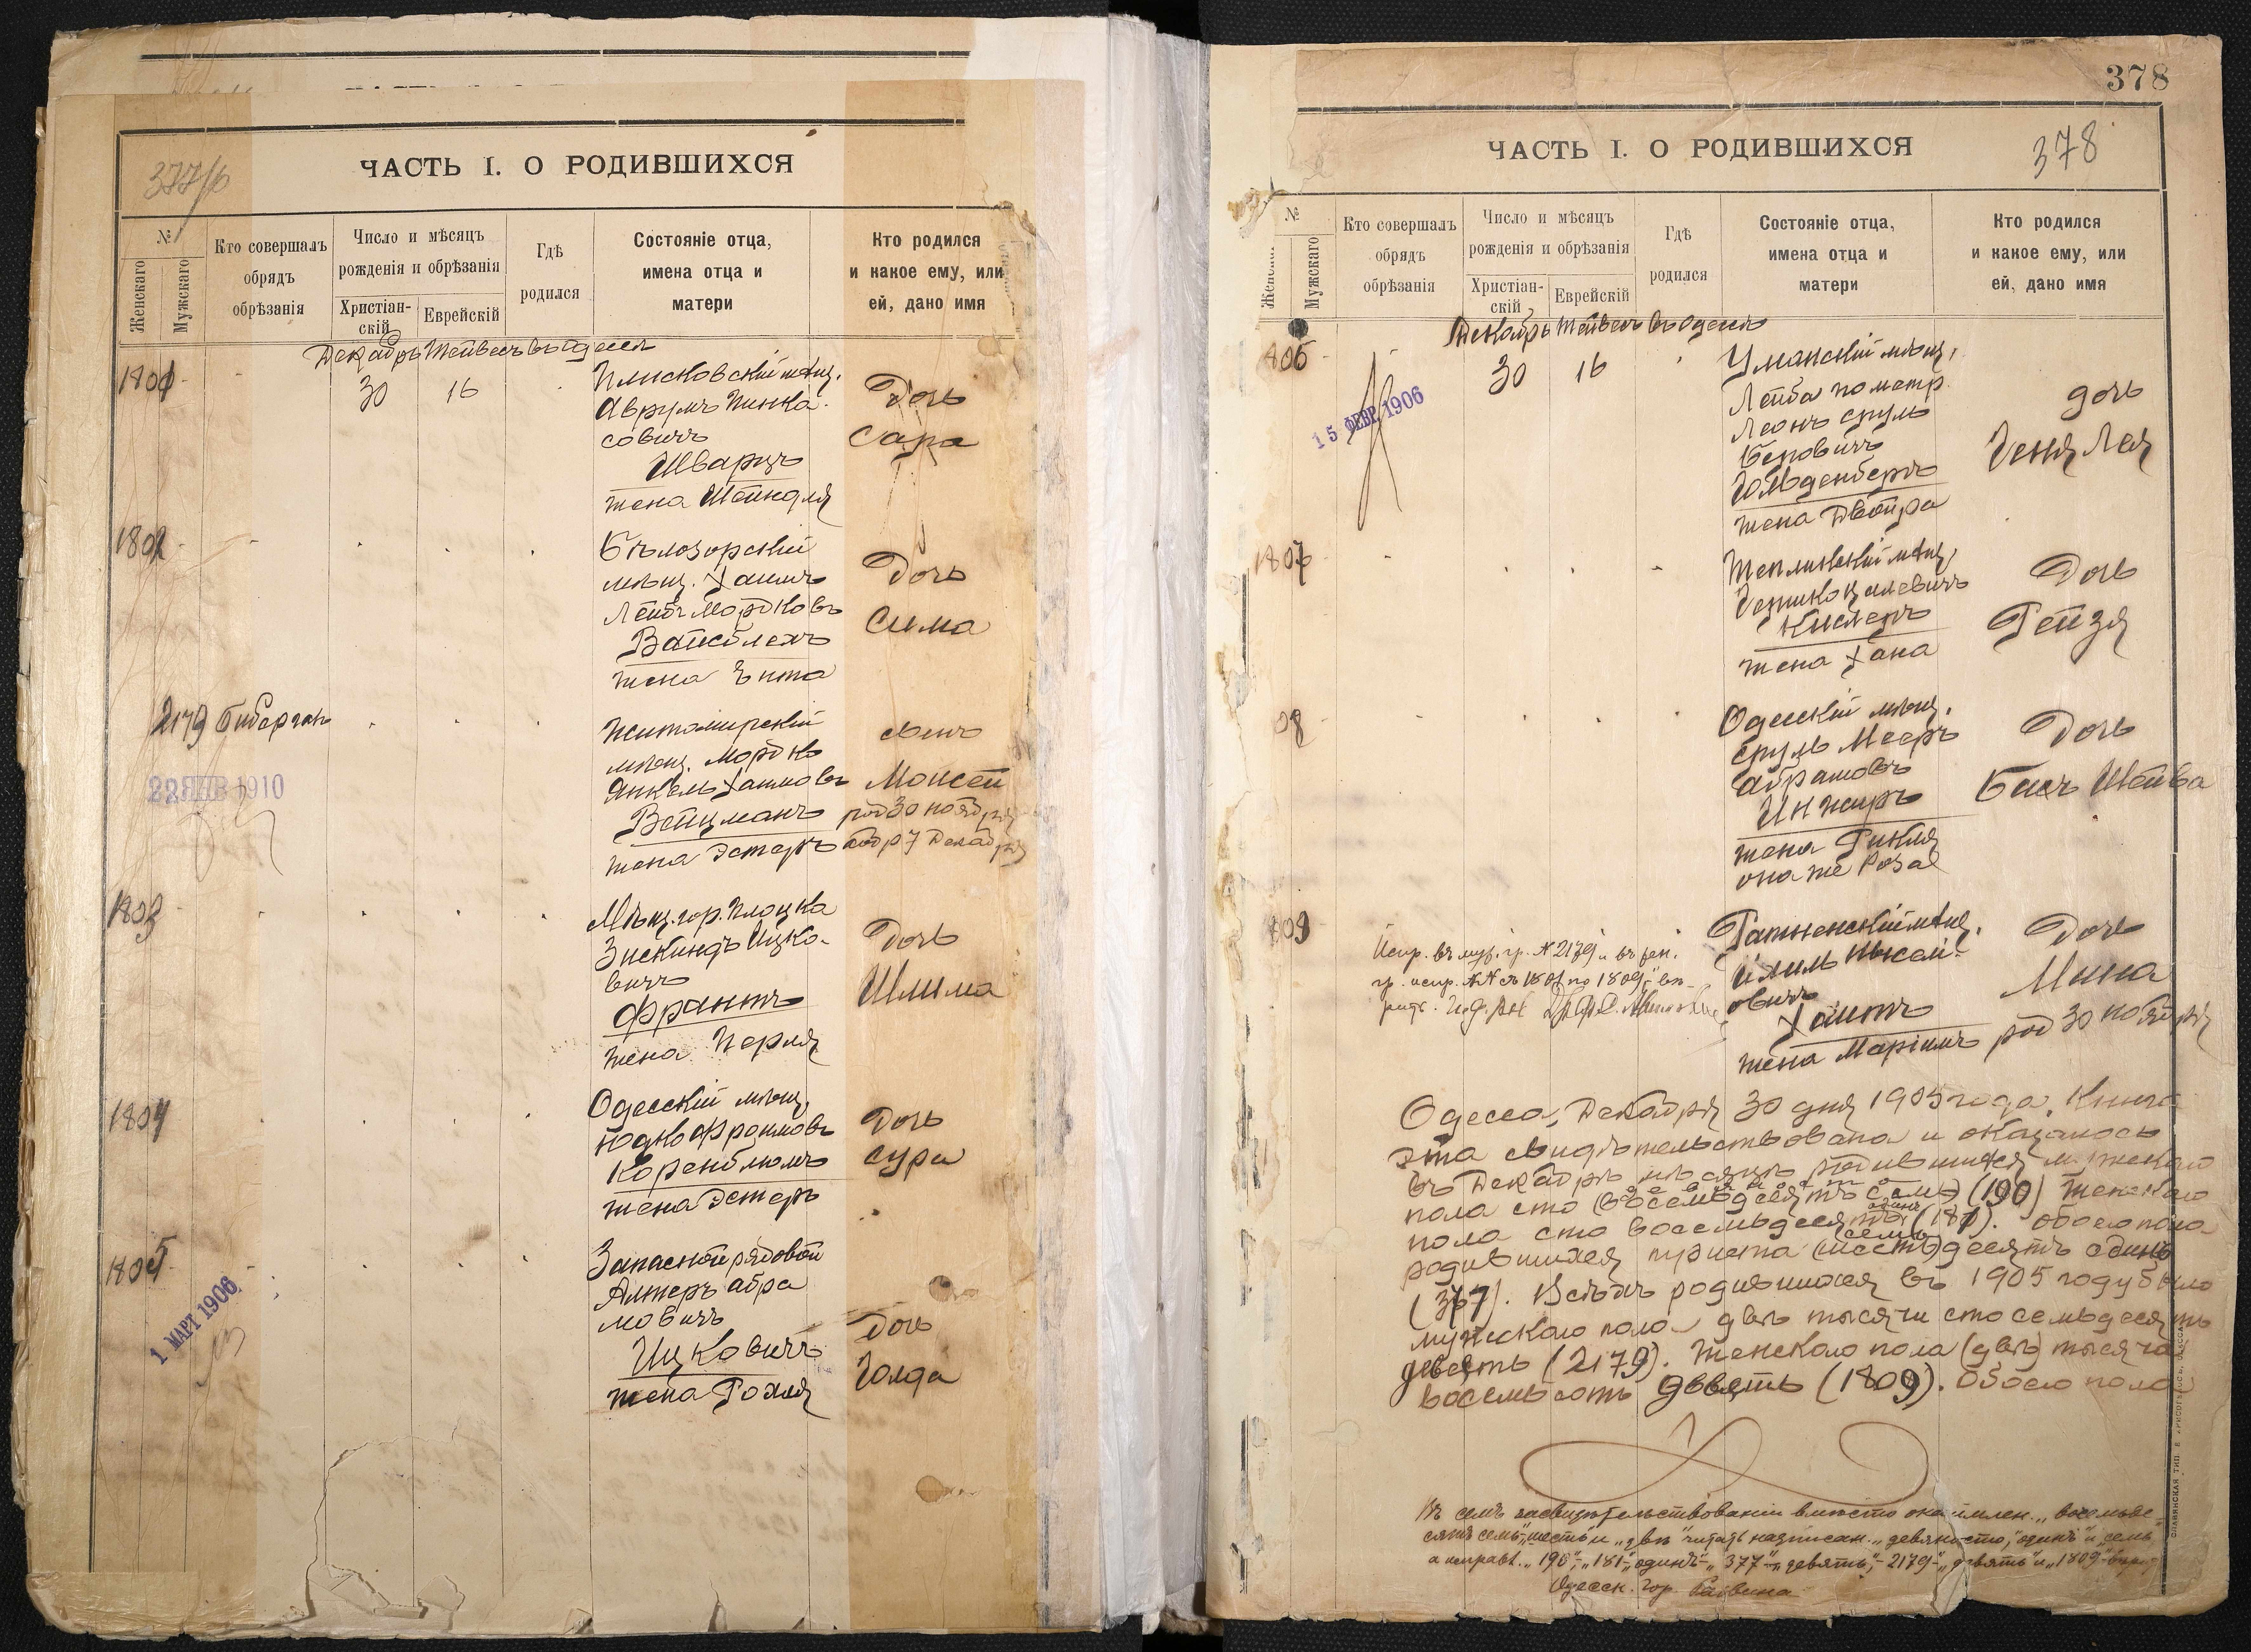 377/б
ЧАСТЬ I. О РОДИВШИХСЯ
№
Женскаго
Мужскаго
Кто совершалъ обрядъ обрѣзанія
Число и мѣсяцъ рожденія и обрѣзанія
Христіан-скій
Еврейскій
Гдѣ родился
Состояніе отца, имена отца и матери
Кто родился и какое ему, или ей, дано имя
Декабрь Тейвесъ въ Одессѣ
1801 - 30 16
Плисковскій мѣщ.
Аврумъ Пинка-
совичъ
Шварцъ
жена Шейндля
Дочь
Сара
1802
Бѣлозорскій
мѣщ. Хаимъ
Лейбъ Мордковъ
Вайсблехъ
жена Ента
Дочь
Сима
2179 Бибергалъ
22 ЯНВ 1910
Житомирскій
мѣщ. Мордко
Янкель Хаимовъ
Вейцманъ
жена Эстеръ
сынъ
Моисей
род 30 ноября
обр 7 Декабря
1803
Мѣщ. гор. Плоцка
Зискиндъ Ицко-
вичъ
Франтъ
жена Перля
Дочь
Шлима
1804
Одесскій мѣщ.
Юдко Фроимовъ
Коренблюмъ
жена Эстеръ
Дочь
Сура
1805
1 МАРТ 1906
Запасной рядовой
Алтеръ Абра
мовичъ
Ицковичъ
жена Рохля
Дочь
Голда
378
ЧАСТЬ I. О РОДИВШИХСЯ
378
№
Мужскаго
Кто совершалъ обрядъ обрѣзанія
Число и мѣсяцъ рожденія и обрѣзанія
Христіан-скій
Еврейскій
Гдѣ родился
Состояніе отца, имена отца и матери
Кто родился и какое ему, или ей, дано имя
Декабрь Тейвесъ въ Одессѣ
806 - 30 16
15 ФЕВР. 1906
Уманскій мѣщ.
Лейба по метр.
Леонъ Сруль
Беровичъ
Гольденбергъ
жена Двойра
дочь
Геня Лея
1807
Тепликскій мѣщ.
Кислеръ
жена Хана
Дочь
Рейзя
08
Одесскій мѣщ.
Сруль Мееръ
Абрамовъ
Инжиръ
жена Рикля
она же Роза
Дочь
Бася Шейва
809
Испр. въ муж. гр. № 2179 и въ жен.
гр. испр. №№ съ 1801 по 1809, вѣ-
Ратненскій мѣщ.
овичъ
Хаитъ
жена Маріимъ
Дочь
Мина
род 30 ноября
Одесса, Декабря 30 дня 1905 года. Книга
эта свидѣтельствована и оказалось
въ Декабрѣ мѣсяцѣ родившихся мужского
девяносто
пола сто (восемьдесятъ семь) (190) женскаго
одинъ
пола сто восемьдесятъ (181). обоего пола
семь
родившихся триста (шесть)десятъ одинъ
(377). Всѣхъ родившихся въ 1905 году было
мужскаго пола двѣ тысячи сто семьдесятъ
девять (2179). Женскаго пола (двѣ) тысяча
восемьсотъ девять (1809). Обоего пола
Въ семъ засвидѣтельствованіи вмѣсто окаймлен. „восемьде-
сятъ семь", „шесть" и „двѣ" читать надписан. „девяносто", „одинъ" и „семь",
а исправл. „190", „181", „одинъ", „377", „девять", „2179", „девять" и „1809"
Одесск. Гор. Раввина
СЛАВЯНСКАЯ ТИП. Е. ХРИСОГЕЛОСЪ, ОДЕССА